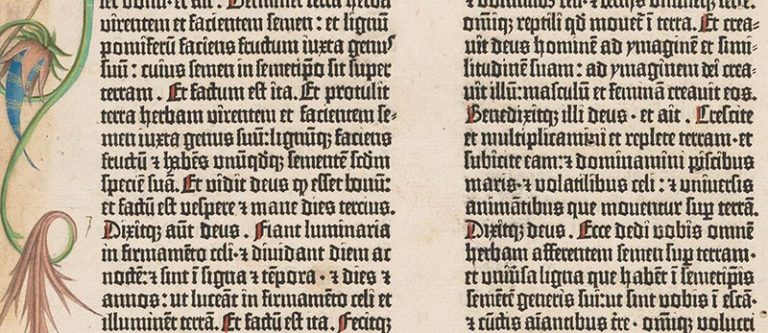 virentem et facientem semen: et lignū
pomiferū faciens fructum iuxta genus
suū: cuius semen in semetipō sit super
terram. Et factum est ita. Et protulit
terra herbam virentem et facientem se-
men iuxta genus suū: lignūq; faciens
fructū ⁊ habēs unūqdq; sementē scdm
speciē suā. Et vidit deus ꝙ esset bonū:
et factū est vespere ⁊ mane dies tercius.
Dixitq; aūt deus. Fiant luminaria
in firmamēto celi· ⁊ dividant diem ac
noctē: ⁊ sint ī signa ⁊ tēpora· ⁊ dies ⁊
annos: ut luceāt in firmamēto celi et
illuminēt terrā. Et factū est ita. Fecitq;
omīq; reptili qd mouet̄ ī terra. Et crea-
uit deus hominē ad ymaginē et simi-
litudinē suam: ad ymaginem dei crea-
uit illū: masculū et feminā creauit eos.
Benedixitq; illi deus· et ait. Crescite
et multiplicamini et replete terram· et
subicite eam: ⁊ dominamini piscibus
maris· ⁊ volatilibus celi: ⁊ universis
animātibus que moventur sup̄ terrā.
Dixitq; deus. Ecce dedi vobis omnē
herbam afferentem semen sup̄ terram·
et uniūsa ligna que habēt ī semetipis
semētē generis sui: ut sint vobis ī escā·
⁊ cūctis aīantibus tr̄e· omīq; volucri